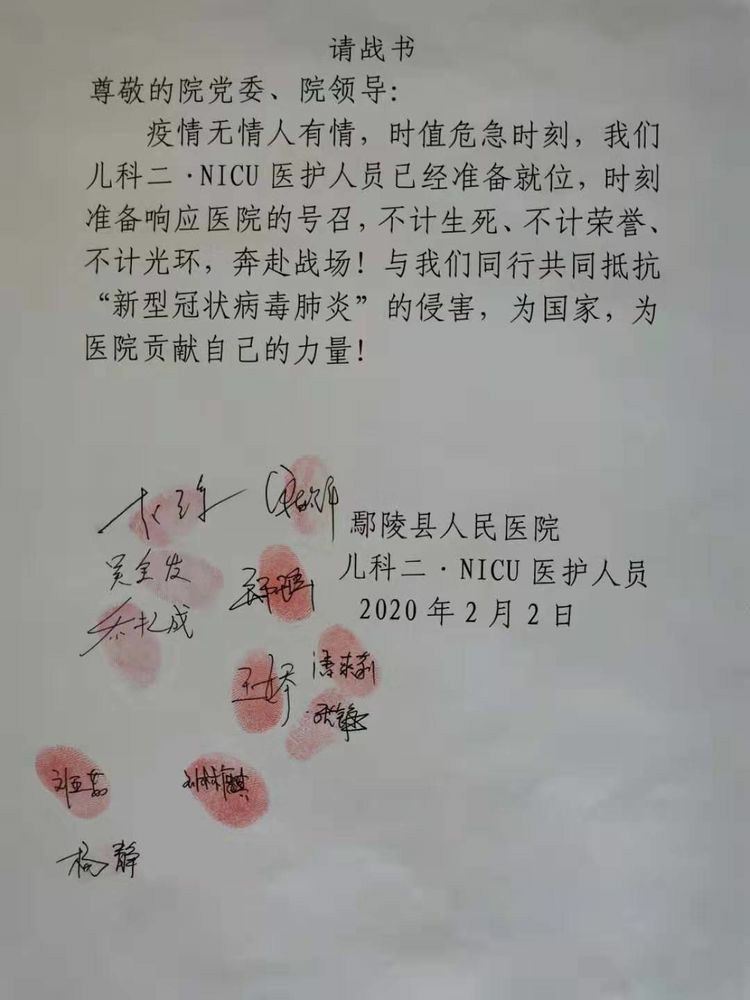 请战书
尊敬的院党委、院领导：
疫情无情人有情，时值危急时刻，我们
儿科二·NICU医护人员已经准备就位，时刻
准备响应医院的号召，不计生死、不计荣誉、
不计光环，奔赴战场！与我们同行共同抵抗
“新型冠状病毒肺炎”的侵害，为国家，为
医院贡献自己的力量！
鄢陵县人民医院
儿科二·NICU医护人员
2020年2月2日
吴全发
乔礼成
王娇
刘亚茹
刘林麒
杨静